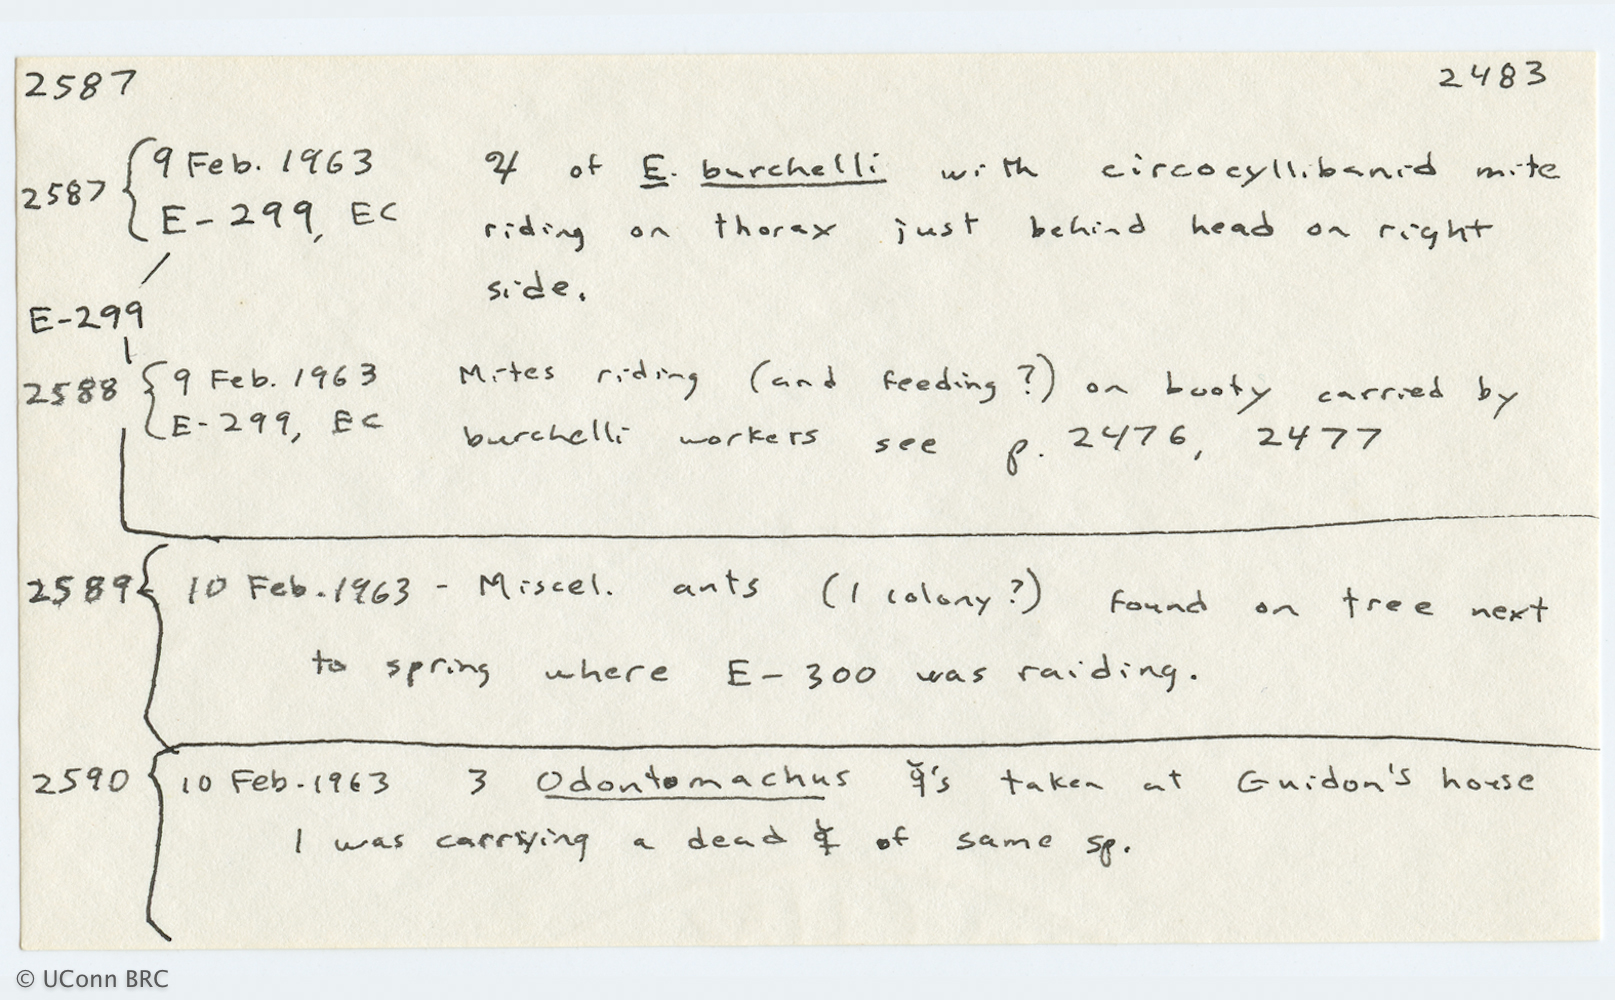 2587 2483
2587 { 9 Feb. 1963 ♃ of E. burchelli with circocyllibanid mite
E-299, EC riding on thorax just behind head on right
side.
E-299
2588 { 9 Feb. 1963 Mites riding (and feeding?) on booty carried by
E-299, EC burchelli workers see p. 2476, 2477
2589 { 10 Feb. 1963 - Miscel. ants (1 colony?) found on tree next
to spring where E-300 was raiding.
2590 { 10 Feb. 1963 3 Odontomachus ☿'s taken at Guidon's house
1 was carrying a dead ☿ of same sp.
© UConn BRC